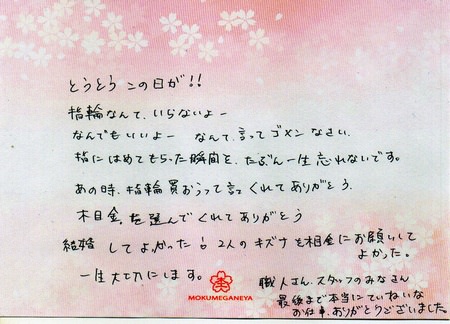 とうとう この日が!!
指輪なんて、いらないよー
なんでもいいよー なんて、言って ゴメン なさい、
指に はめて もらった 瞬間を、たぶん一生 忘れないです。
あの時、指輪 買おうって 言って くれて ありがとう、
木目金を 選んで くれて ありがとう
結婚 して よかった 2人の キズナを 木目金に お願いして
よかった。
一生大切に します。
職人さん、スタッフの みなさん
最後まで 本当に ていねいな
お仕事、ありがとうございました。
MOKUMEGANEYA